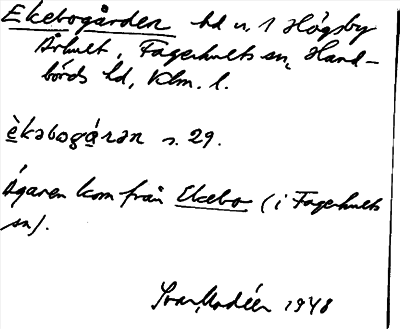 Ekebogården hd n. 1 Högsby
Århult, Fagerhults sn, Hand-
börds hd, Klm. l.
èkəbogárən s. 29.
Ägaren kom från Ekebo (i Fagerhults
sn).
Ivar Modéer 1948